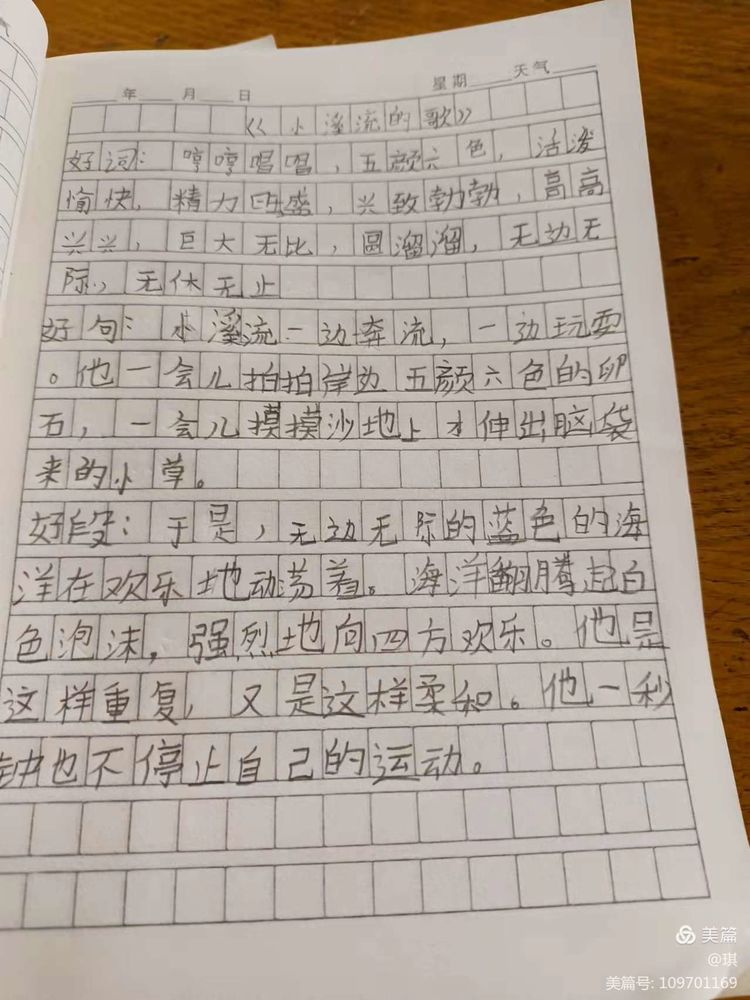 年 月 日 星期 天气
《小溪流的歌》
好词：哼哼唱唱，五颜六色，活泼
愉快，精力旺盛，兴致勃勃，高高
兴兴，巨大无比，圆溜溜，无边无
际，无休无止
好句：小溪流一边奔流，一边玩耍
。他一会儿拍拍岸边五颜六色的卵
石，一会儿摸摸沙地上才伸出脑袋
来的小草。
好段：于是，无边无际的蓝色的海
洋在欢乐地动荡着。海洋翻腾起白
色泡沫，强烈地向四方欢乐。他是
这样重复，又是这样柔和。他一秒
钟也不停止自己的运动。
美篇
@琪
美篇号: 109701169